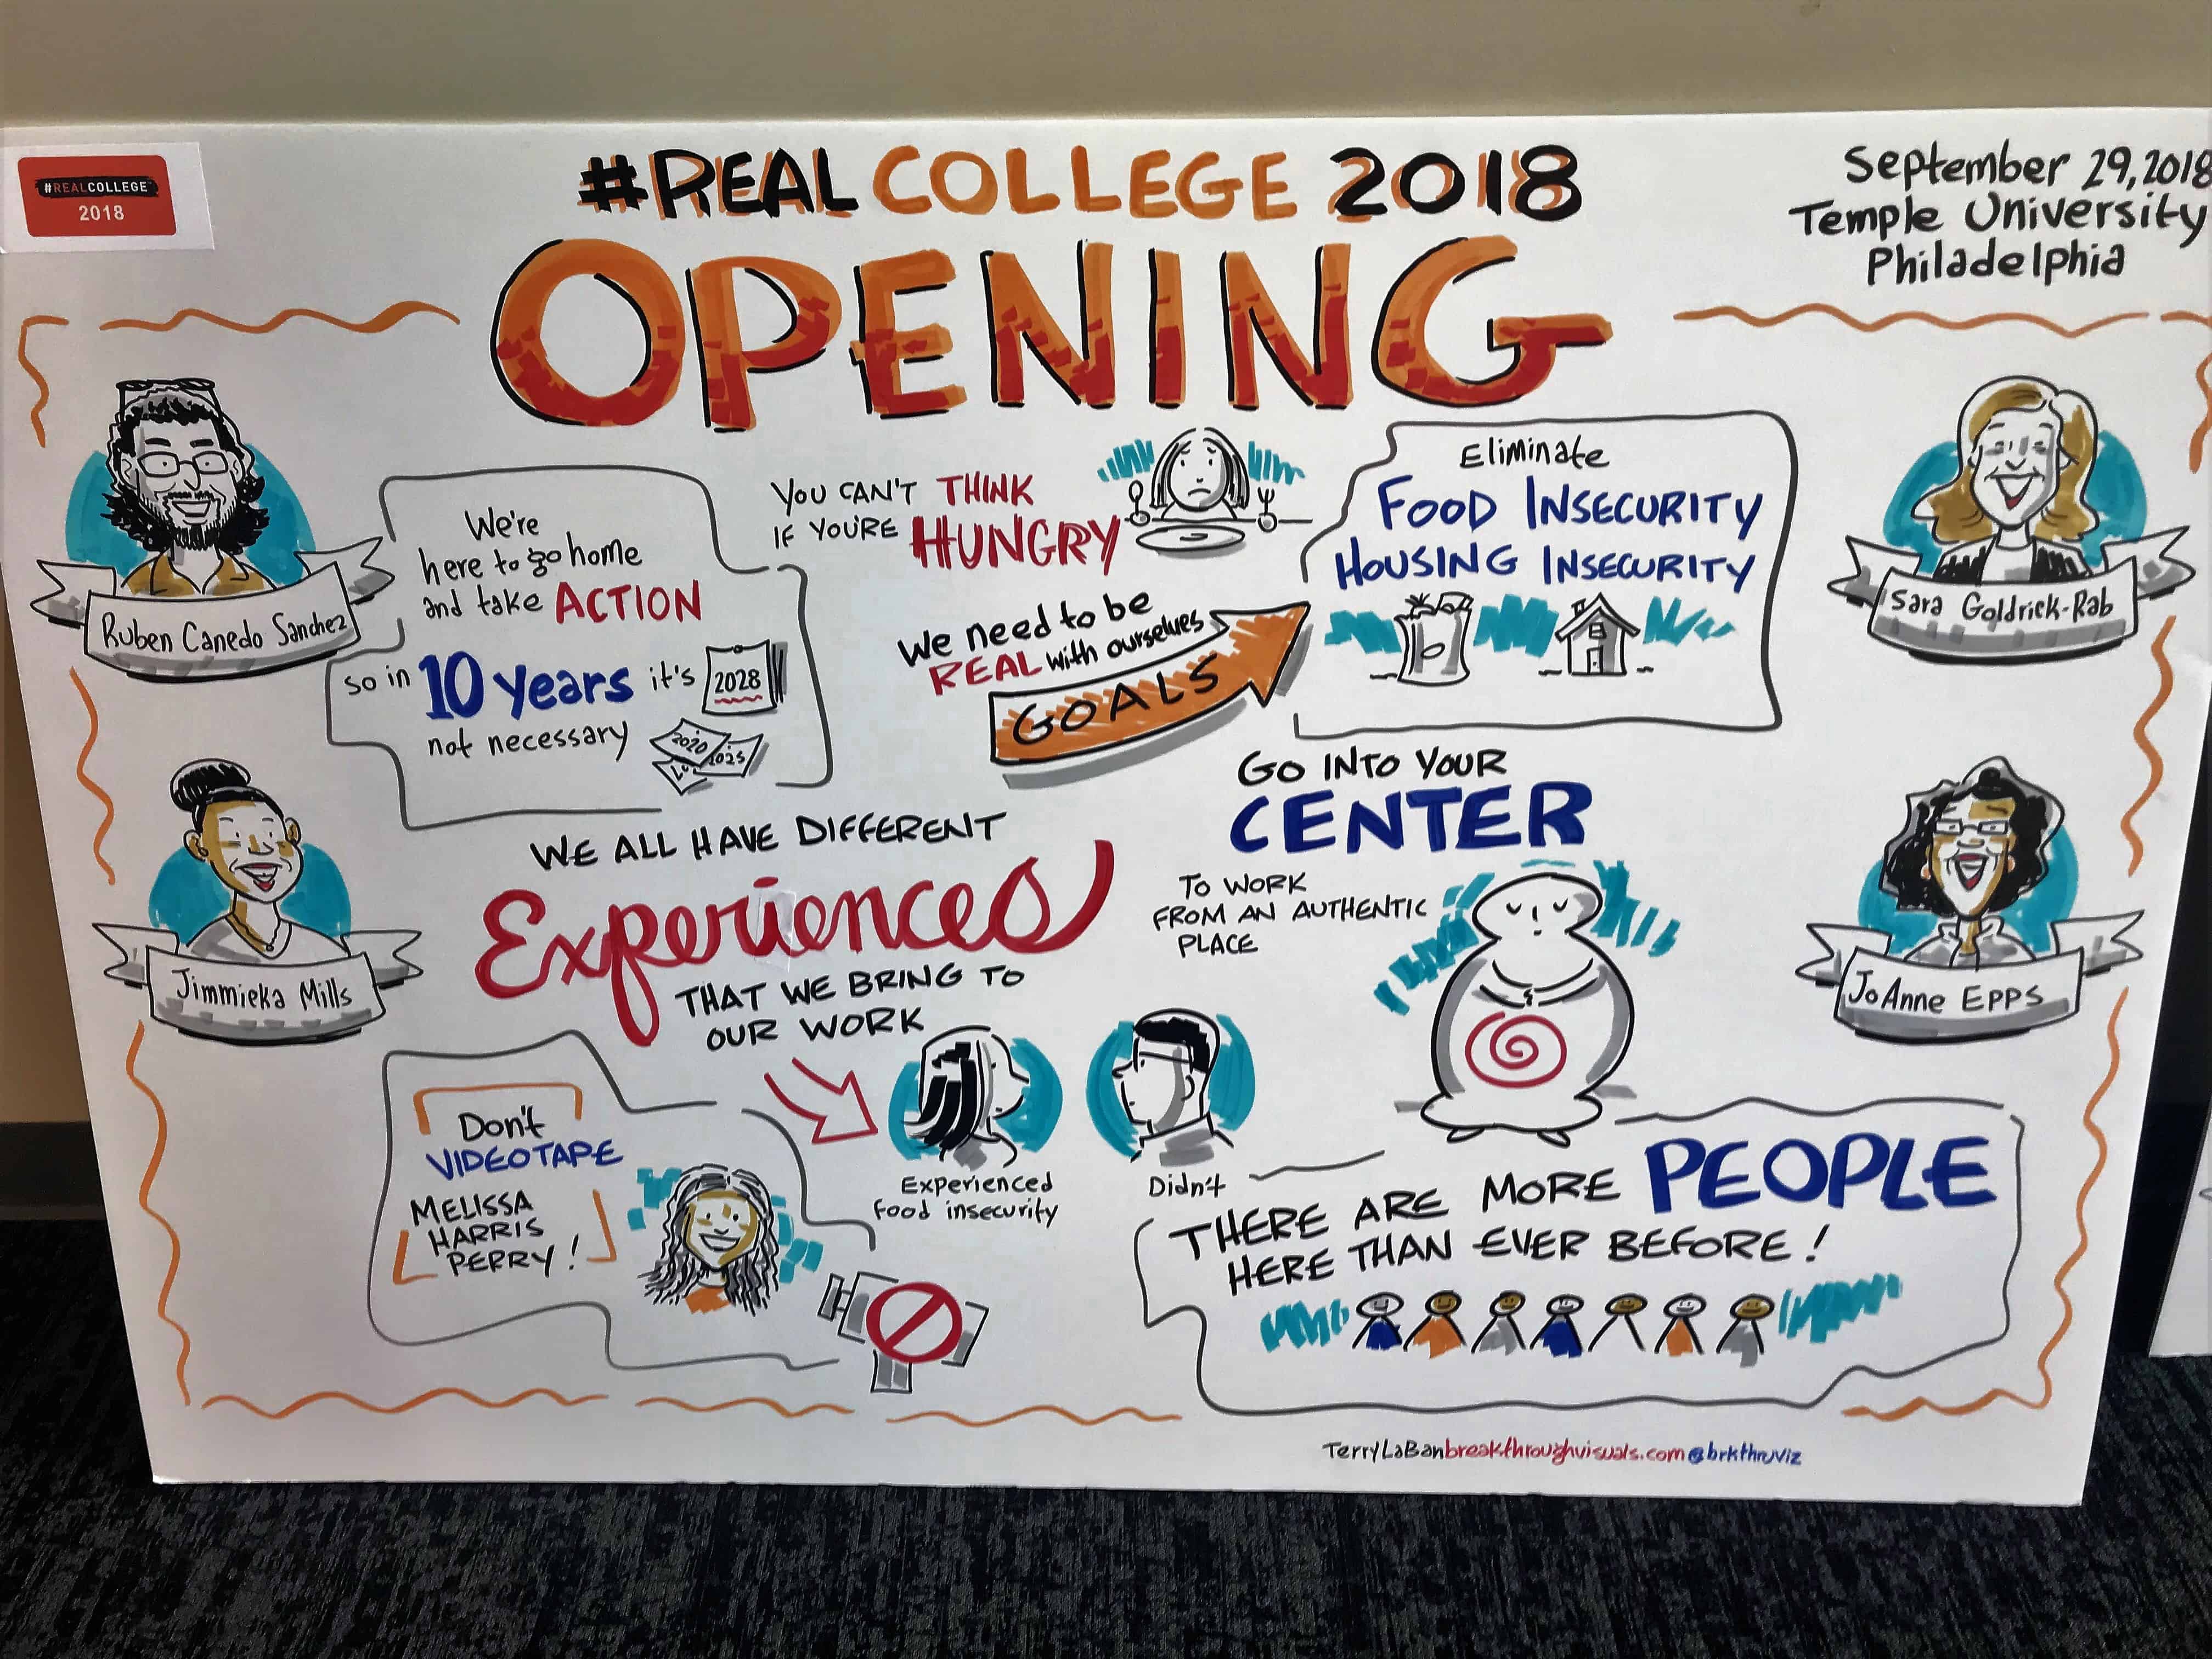 #REALCOLLEGE
2018
#REAL COLLEGE 2018
OPENING
September 29, 2018
Temple University
Philadelphia
Ruben Canedo Sanchez
We're
here to go home
and take ACTION
so in 10 years it's
not necessary
2028
2020
2025
YOU CAN'T THINK
IF YOU'RE HUNGRY
We need to be
REAL with ourselves
GOALS
Eliminate
FOOD INSECURITY
HOUSING INSECURITY
Sara Goldrick-Rab
Jimmieka Mills
WE ALL HAVE DIFFERENT
Experiences
THAT WE BRING TO
OUR WORK
Experienced
food insecurity
Didn't
GO INTO YOUR
CENTER
TO WORK
FROM AN AUTHENTIC
PLACE
JoAnne EPPS
Don't
VIDEOTAPE
MELISSA
HARRIS
PERRY!
THERE ARE MORE PEOPLE
HERE THAN EVER BEFORE!
TerryLaBanbreakthroughvisuals.com@brkthruviz